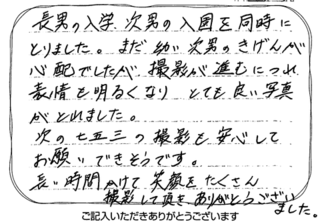 長男の入学 次男の入園を同時に
とりました。まだ幼い次男のきげんが
心配でしたが 撮影が進むにつれ
表情も明るくなり とても良い写真
がとれました。
次の七五三の撮影も安心して
お願いできそうです。
長い時間かけて 笑顔をたくさん
撮影して頂き ありがとうござい
ました。
ご記入いただきありがとうございます